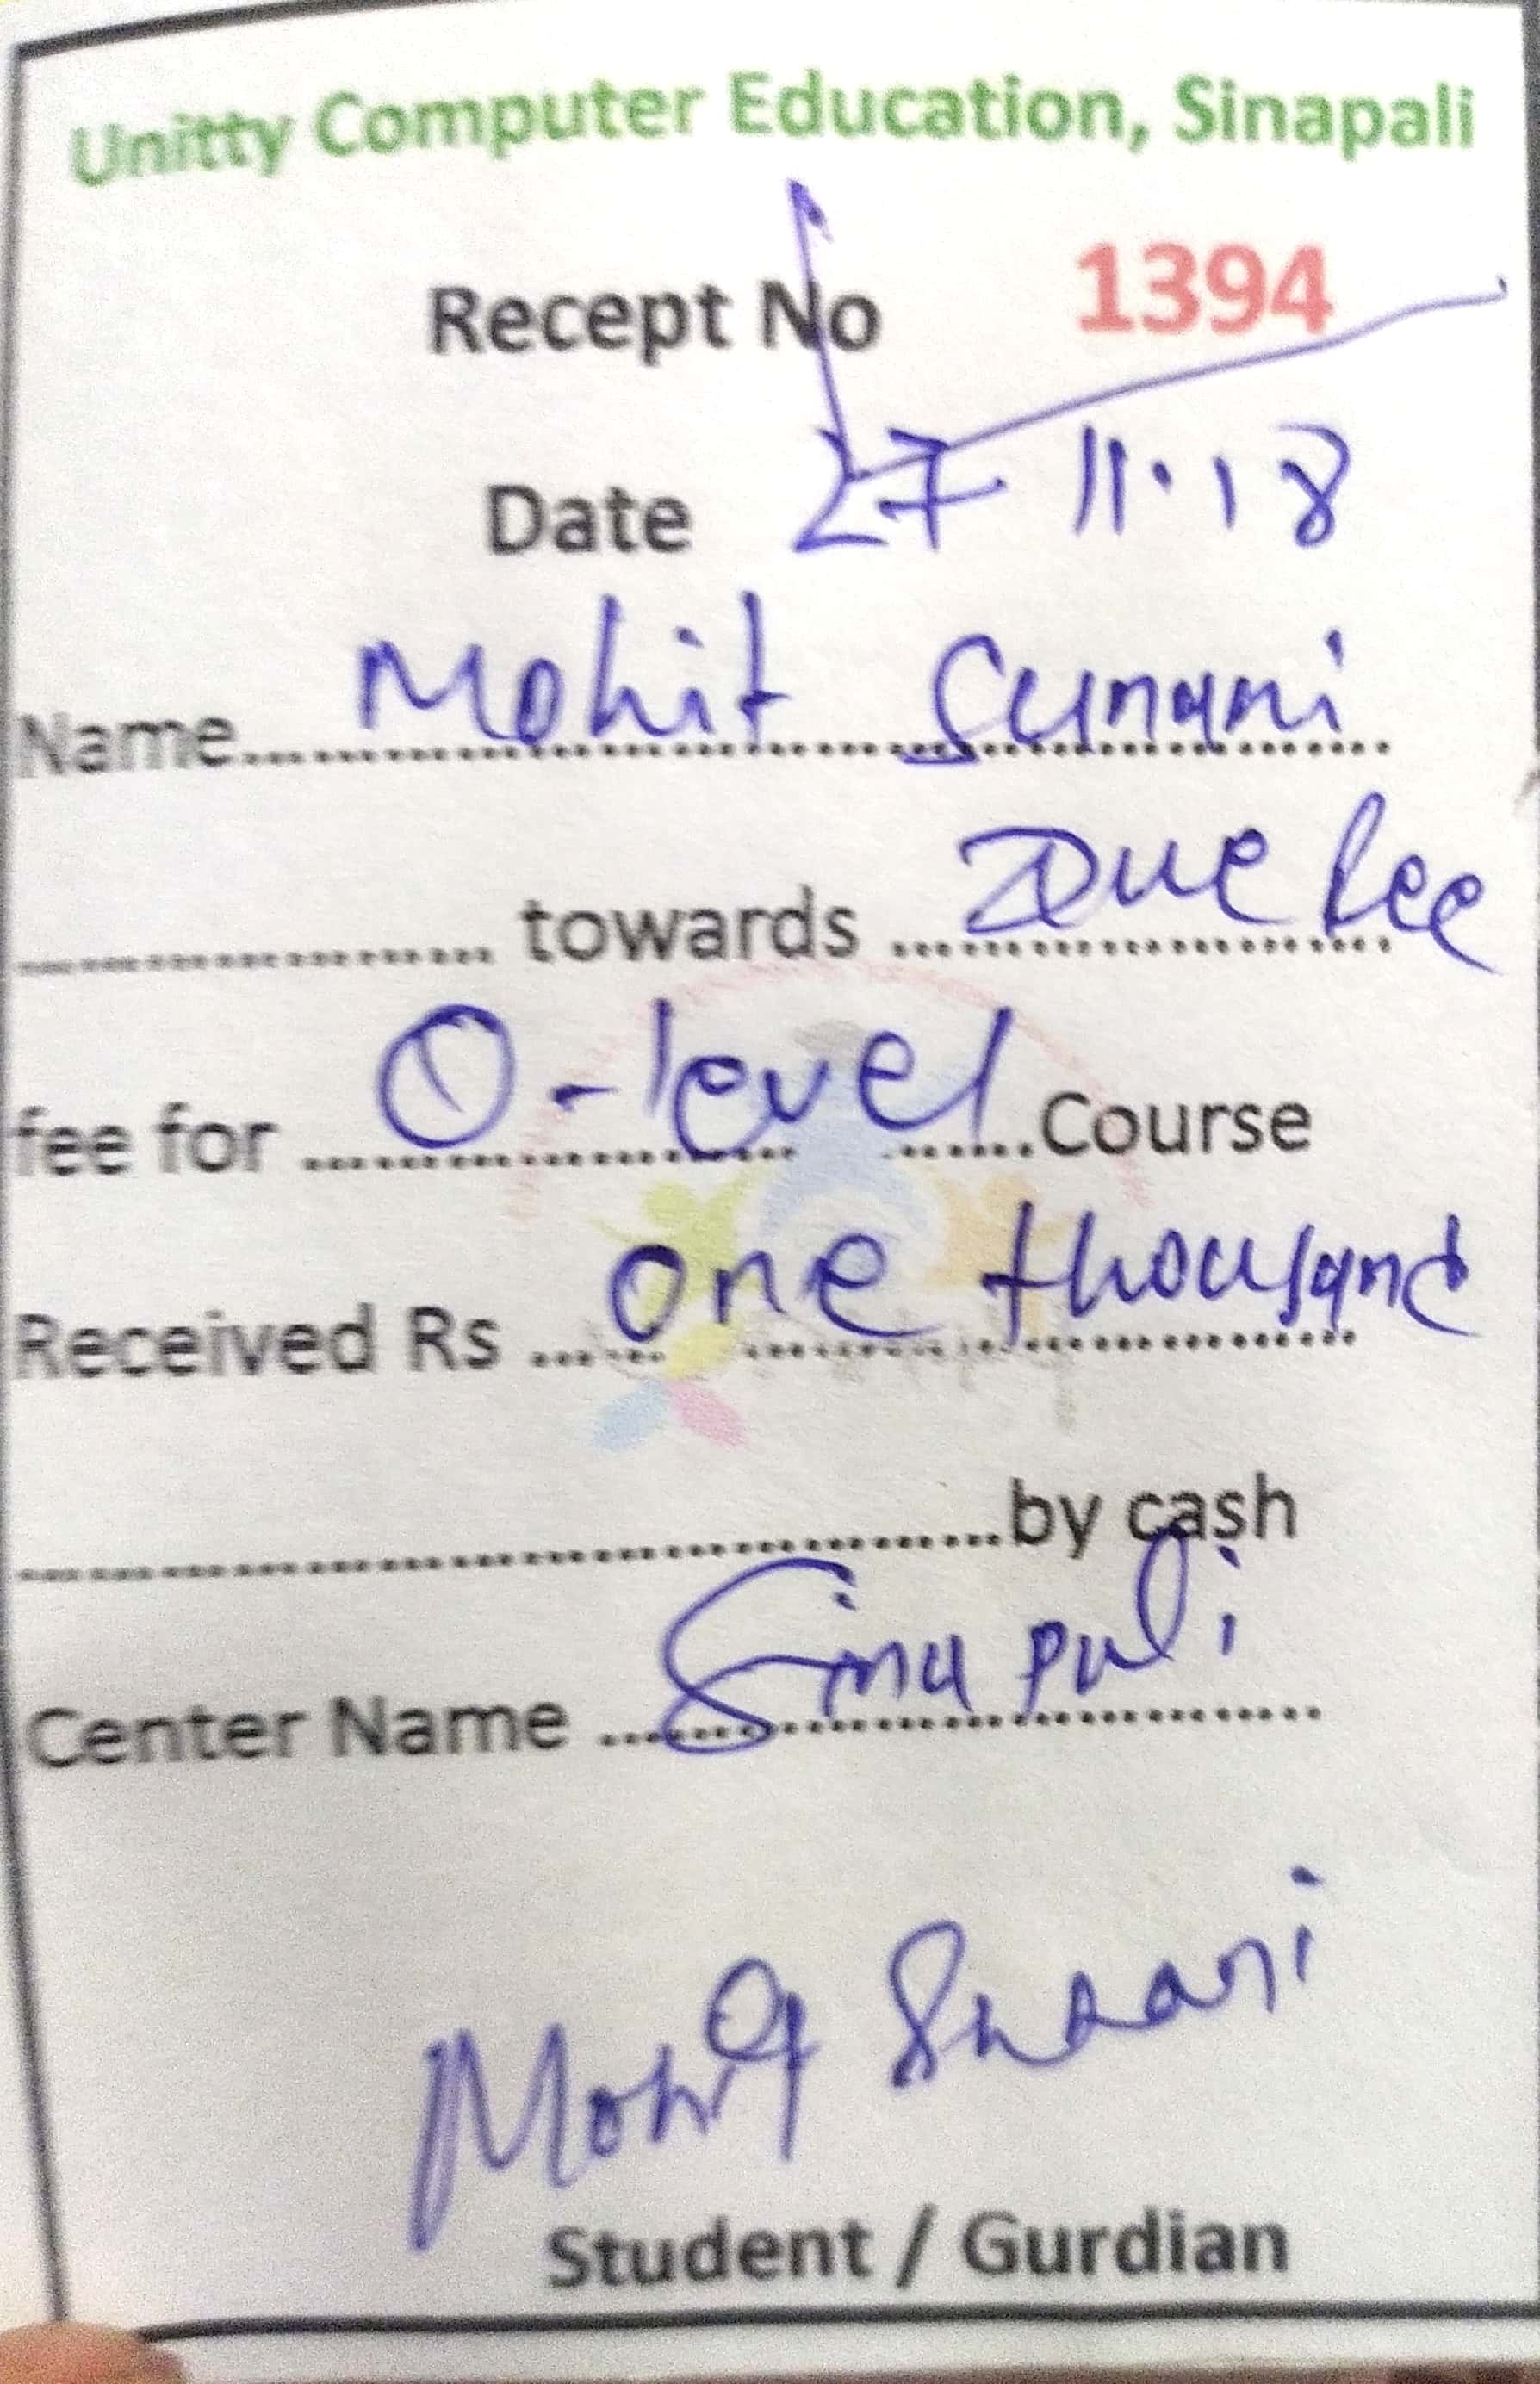 Unitty Computer Education, Sinapali
Recept No 1394
Date 27.11.18
Name.......... Mohit Sunani
.......... towards .......... Due fee
fee for .......... O-level ..........Course
Received Rs .......... one thousand
..........by cash
Center Name .......... Sinapali
Mohit Sunani
Student / Gurdian